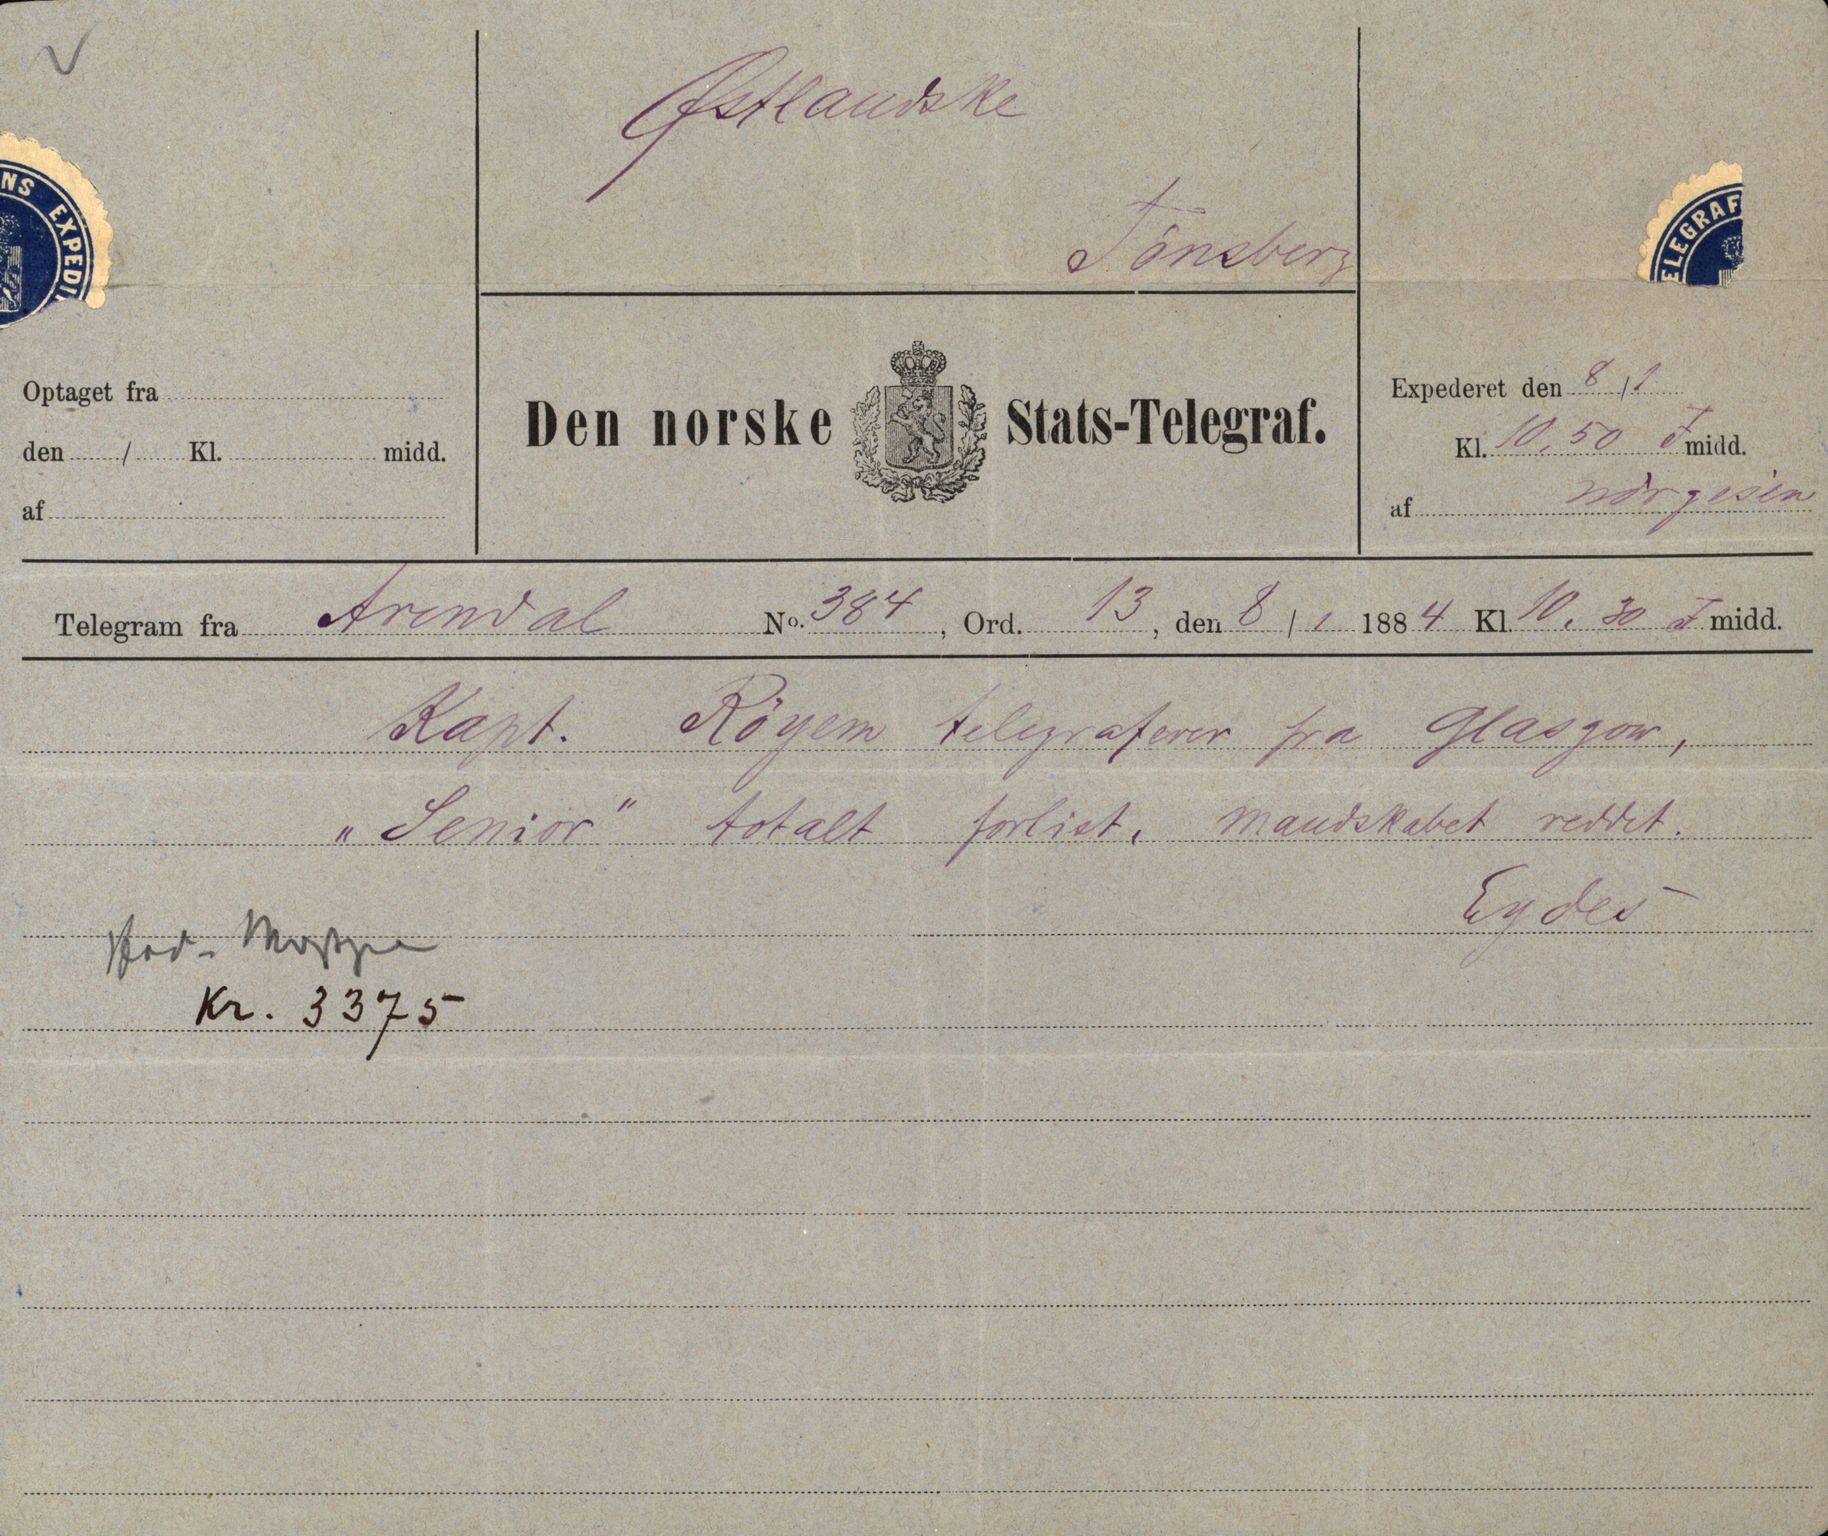 Østlandske
Tönsberg
NS EXPEDI
ELEGRAF
Optaget fra
den / Kl. midd.
af
Den norske Stats-Telegraf.
Expederet den 8/1
Kl. 10,50 F midd.
af
Telegram fra Arendal No. 384, Ord. 13, den 8/1 1884 Kl. 10,30 F midd.
Kapt. Röyem telegraferer fra Glasgow,
„Senior" totalt forlist, mandskabet reddet.
Eydes
Kr. 3375